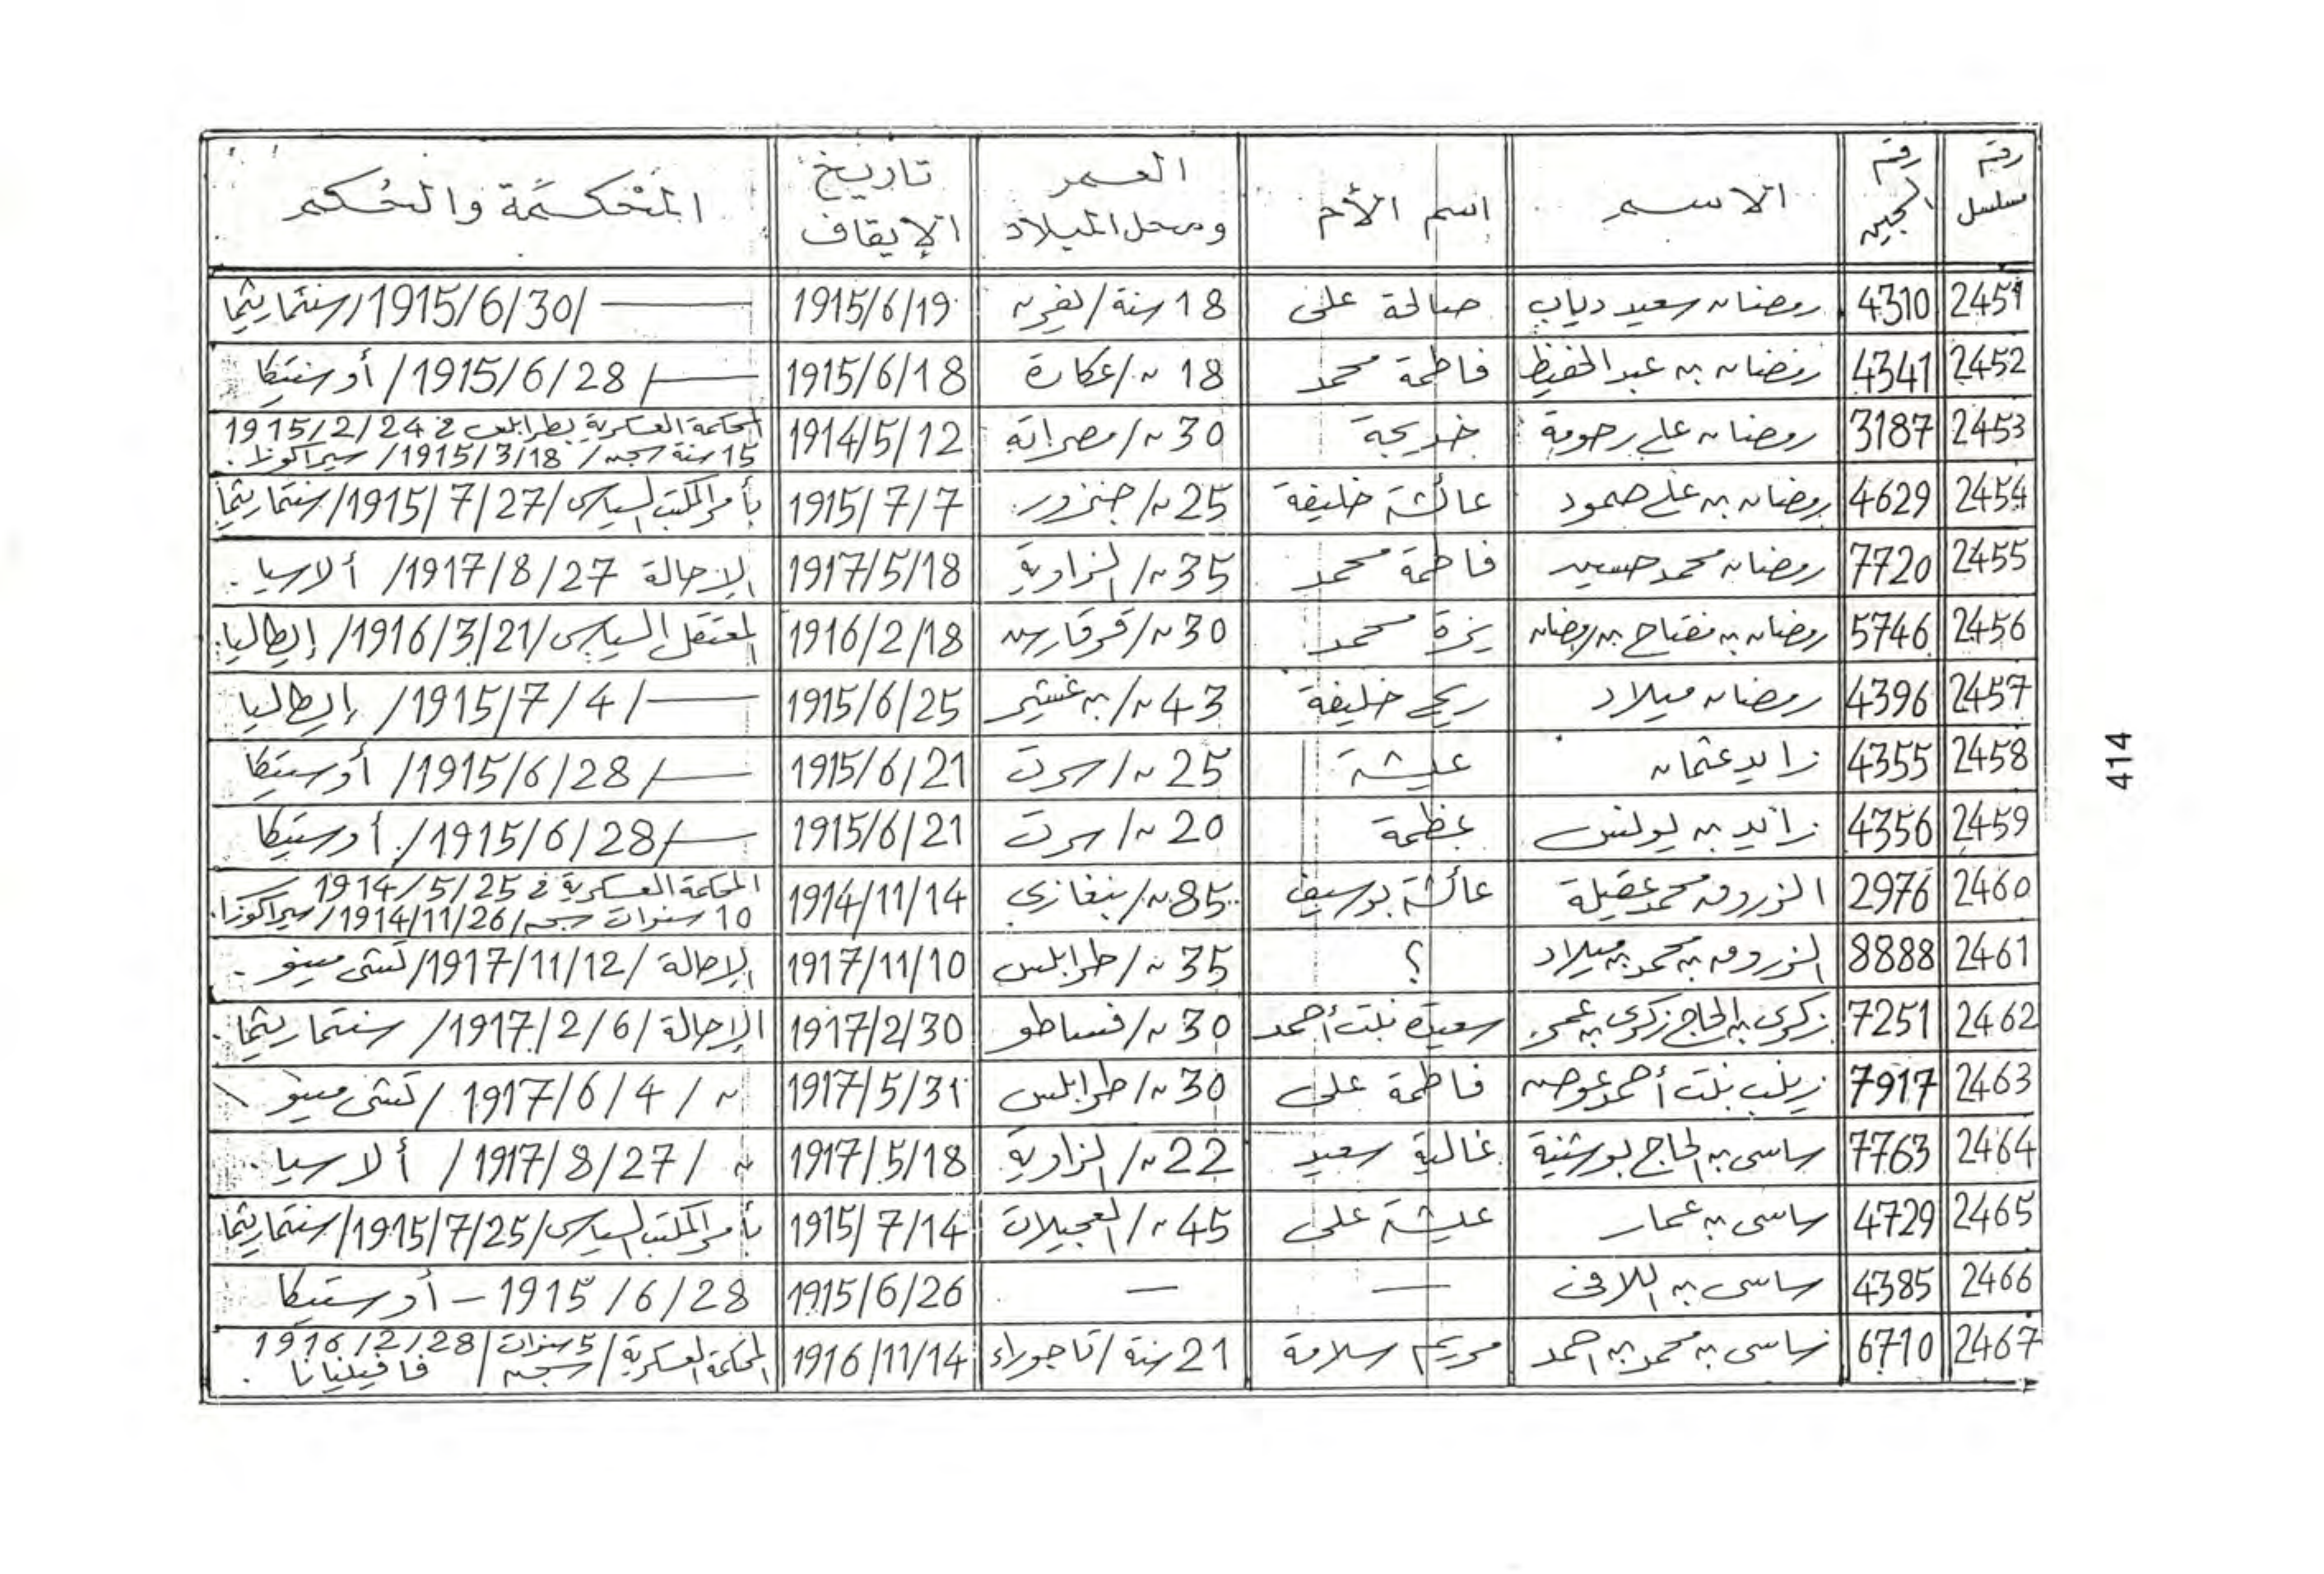 رقم مسلسل | رقم السجين | الاسم | اسم الأم | العمر ومحل الميلاد | تاريخ الإيقاف | المحكمة والحكم
2451 | 4310 | رمضان سعيد دياب | صالحة على | 18 سنة / | 1915/6/19 | ـــ /1915/6/30/ سنتماريتما
2452 | 4341 | رمضان بن عبد الحفيظ | فاطمة محمد | 18 ~/ عكارة | 1915/6/18 | ـــ/ 1915/6/28 / أوستيكا
2453 | 3187 | رمضان على رحومة | خديجة | 30 ~/ مصراته | 1914/5/12 | المحكمة العسكرية بطرابلس في 1915/2/24
15 سنة سجن / 1915/3/18 / سيراكوزا.
2454 | 4629 | رمضان بن على حمود | عائشة خليفة | 25 ~/ جنزور | 1915/7/7 | بأمر المكتب السياسى /1915/7/27/ سنتماريتما
2455 | 7720 | رمضان محمد حسين | فاطمة محمد | 35 ~/ الزاوية | 1917/5/18 | الإحالة 1917/8/27 / ألاسيا.
2456 | 5746 | رمضان بن مفتاح بن رمضان | يزة محمد | 30 ~/ قرقارش | 1916/2/18 | المعتقل السياسى /1916/3/21/ إيطاليا.
2457 | 4396 | رمضان ميلاد | ريح خليفة | 43 ~/ بن غشير | 1915/6/25 | ـــ/ 1915/7/4 / إيطاليا
2458 | 4355 | زايد عثمان | عيشة | 25 ~/ سرت | 1915/6/21 | ـــ/ 1915/6/28 / أوستيكا
2459 | 4356 | زايد بن يونس | عظمة | 20 ~/ سرت | 1915/6/21 | ـــ/ 1915/6/28 / أوستيكا
2460 | 2976 | الزروق محمد عقيلة | عائشة بوسيف | 85 ~/ بنغازي | 1914/11/14 | المحكمة العسكرية في 1914/5/25
10 سنوات سجن /1914/11/26/ سيراكوزا.
2461 | 8888 | الزروق بن محمد بن ميلاد | ؟ | 35 ~/ طرابلس | 1917/11/10 | الإحالة /1917/11/12/ كتشى مينو.
2462 | 7251 | زكرى بن الحاج زكرى بن عمر | سعيدة بنت أحمد | 30 ~/ فساطو | 1917/2/30 | الإحالة /1917/2/6/ سنتماريتما.
2463 | 7917 | زينب بنت أحمد عوض | فاطمة على | 30 ~/ طرابلس | 1917/5/31 | ~ / 1917/6/4 / كتشى مينو
2464 | 7763 | ساسى بن الحاج بوشنية | غالية سعيد | 22 ~/ الزاوية | 1917/5/18 | ~ / 1917/8/27 / ألاسيا.
2465 | 4729 | ساسى بن عمار | عيشة على | 45 ~/ العجيلات | 1915/7/14 | بأمر المكتب السياسى /1915/7/25/ سنتماريتما
2466 | 4385 | ساسى بن اللافى | — | — | 1915/6/26 | 1915/6/28 – أوستيكا
2467 | 6710 | ساسى بن محمد بن احمد | مريم سلامة | 21 سنة / تاجوراء | 1916/11/14 | المحكمة العسكرية / 5 سنوات سجن / 1916/2/28
فافينيانا.
414